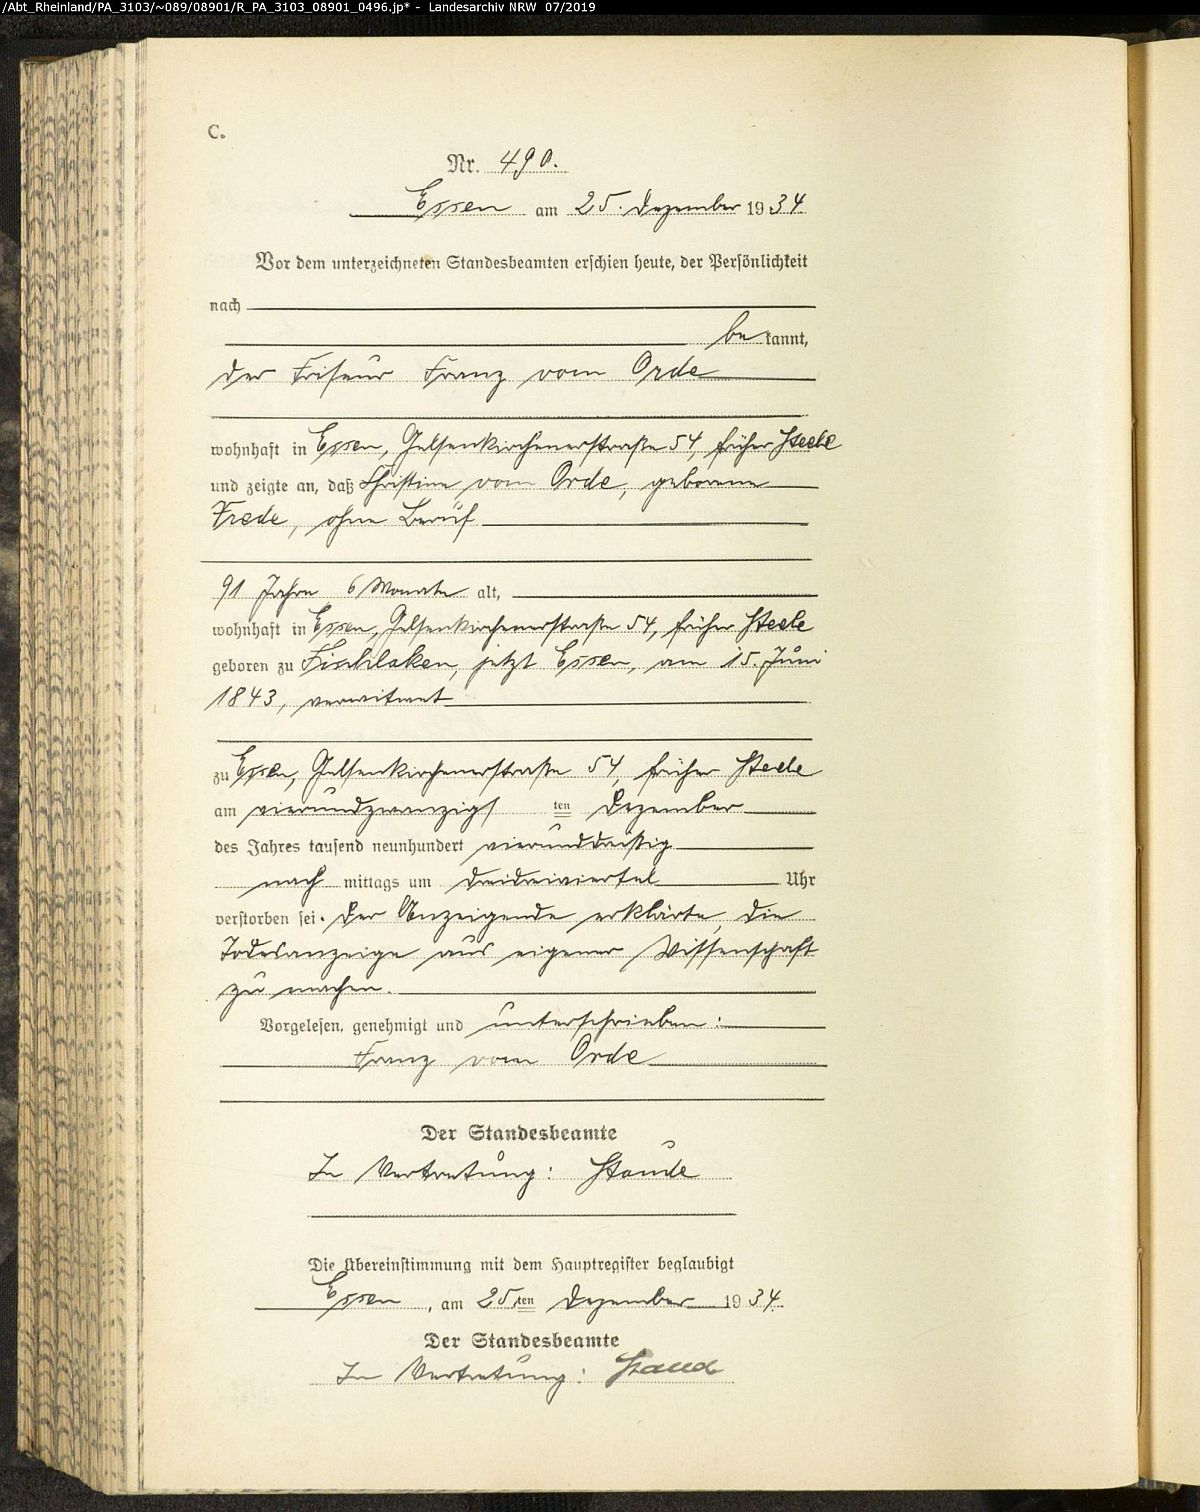 /Abt_Rheinland/PA_3103/~089/08901/R_PA_3103_08901_0496.jp* - Landesarchiv NRW 07/2019
C.
Nr. 490.
Essen am 25. Dezember 1934
Vor dem unterzeichneten Standesbeamten erschien heute, der Persönlichkeit
nach
bekannt,
der Friseur Franz vom Orde
wohnhaft in Essen, Gelsenkirchenerstraße 54, früher Steele
und zeigte an, daß Christine vom Orde, geborene
Frede, ohne Beruf
91 Jahre 6 Monate alt,
wohnhaft in Essen, Gelsenkirchenerstraße 54, früher Steele
geboren zu Fischlaken, jetzt Essen, am 15. Juni
1843, verwitwet
zu Essen, Gelsenkirchenerstraße 54, früher Steele
am vierundzwanzigsten Dezember
des Jahres tausend neunhundert vierunddreißig
nachmittags um dreidreiviertel Uhr
verstorben sei. Der Anzeigende erklärte, die
Todesanzeige aus eigener Wissenschaft
zu machen.
Vorgelesen, genehmigt und unterschrieben:
Franz vom Orde
Der Standesbeamte
In Vertretung: Staude
Die Übereinstimmung mit dem Hauptregister beglaubigt
Essen, am 25.ten Dezember 1934.
Der Standesbeamte
In Vertretung: